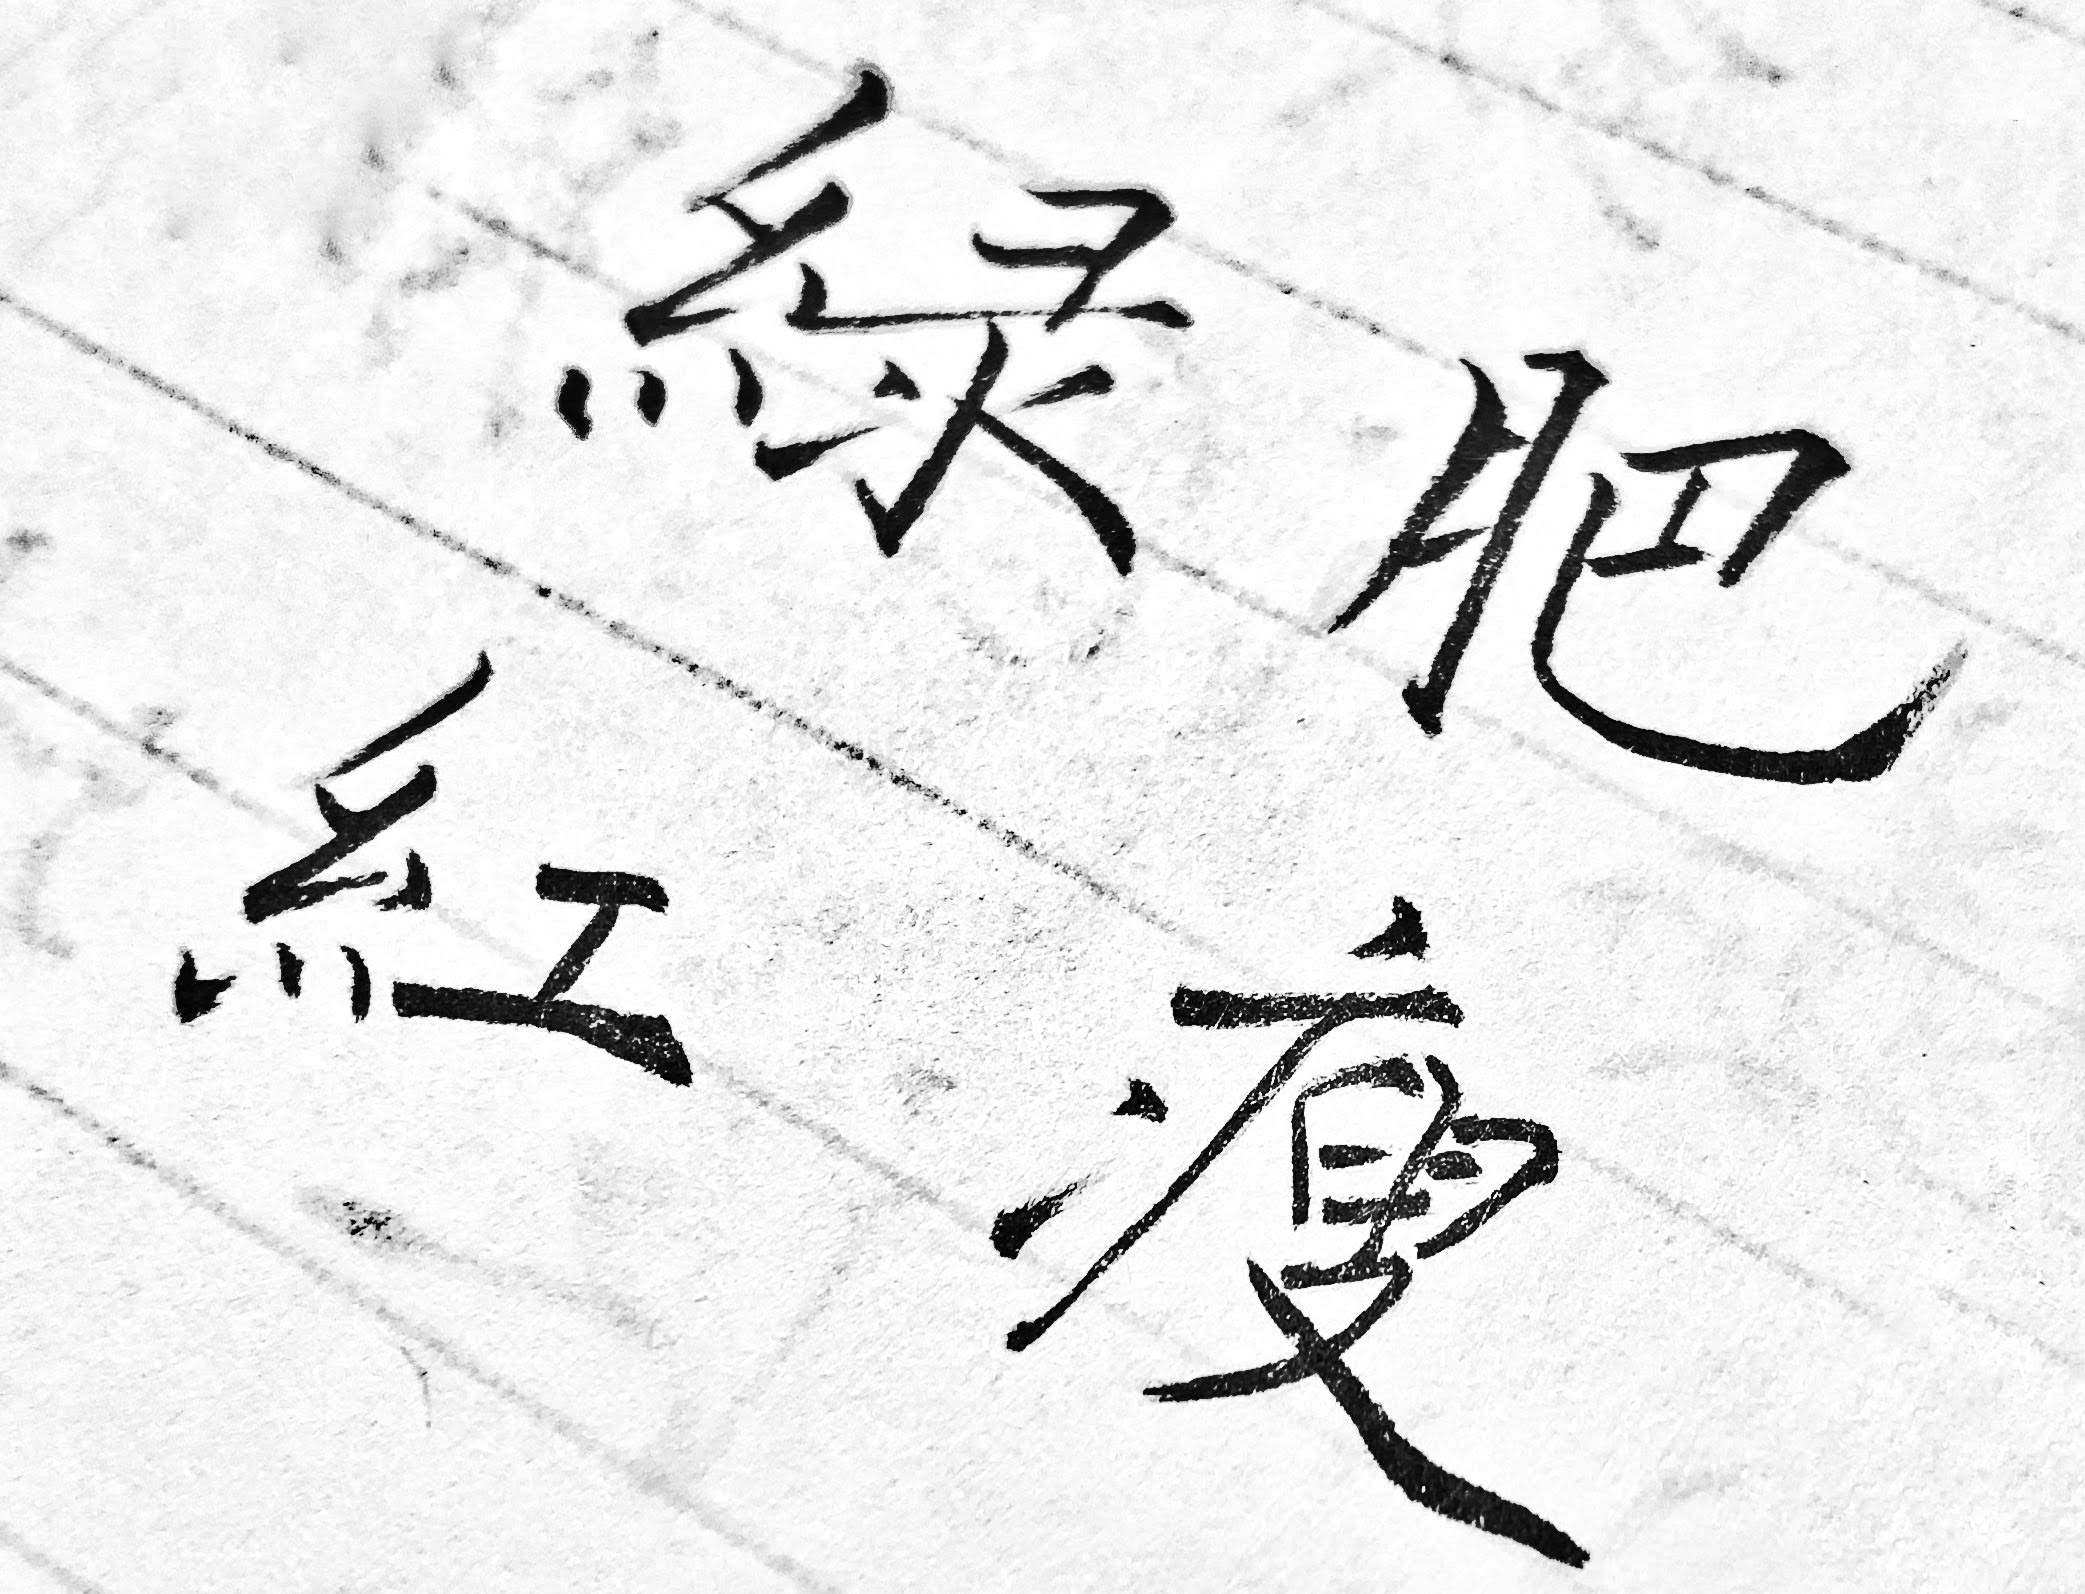 綠肥
紅瘦